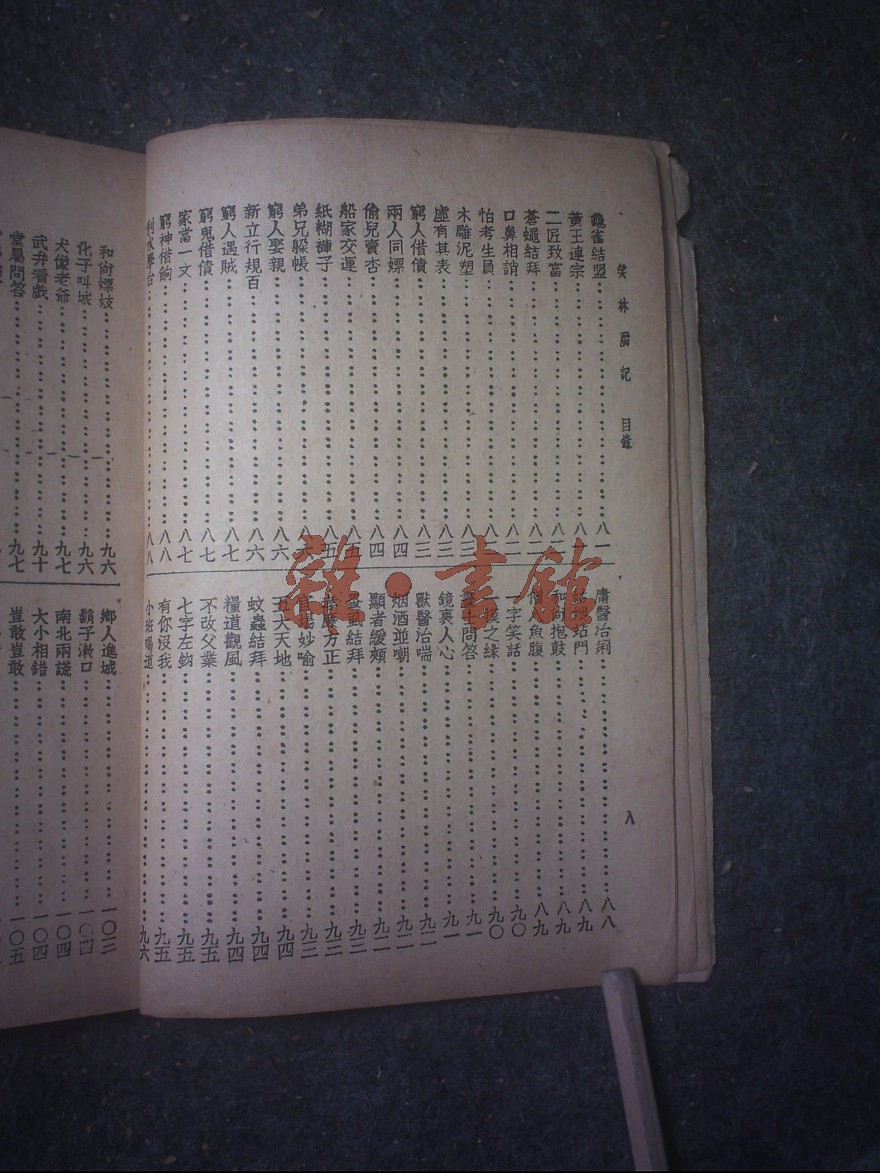 笑林廣記 目錄
龜雀結盟……八一
黃王連宗……八
二匠致富……八二
蒼蠅結拜……八二
口鼻相誚……八二
怕考生員……八三
木雕泥塑……八三
虛有其表……八三
窮人借債……八三
兩人同嫖……八四
偷兒賣杏……八四
船家交運……八五
紙糊褲子……八五
弟兄躲帳……八六
窮人娶親……八六
新立行規百……八六
窮人遇賊……八七
窮鬼借債……八七
家當一文……八七
窮神借餉……八八
八八
庸醫治痢……八八
站門……八九
和尚抱鼓……八九
人魚腹……八九
一字笑話……九〇
之緣……九〇
問答……九一
鏡裏人心……九一
獸醫治喘……九二
烟酒並嘲……九二
顯者緩頰……九二
蚤虱結拜……九三
孝廉方正……九三
官場妙喻……九三
五大天地……九四
蚊蟲結拜……九四
糧道觀風……九四
不改父業……九五
七字左鈎……九五
有你沒我……九五
小班喝道……九六
八
和尚嫖妓……九六
化子叫城……九六
犬像老爺……九七
武弁看戲……九十
堂屬問答……九七
鄉人進城……一〇三
鬍子漱口……一〇四
南北兩謊……一〇四
大小相錯……一〇四
豈敢豈敢……一〇五
雜·書館